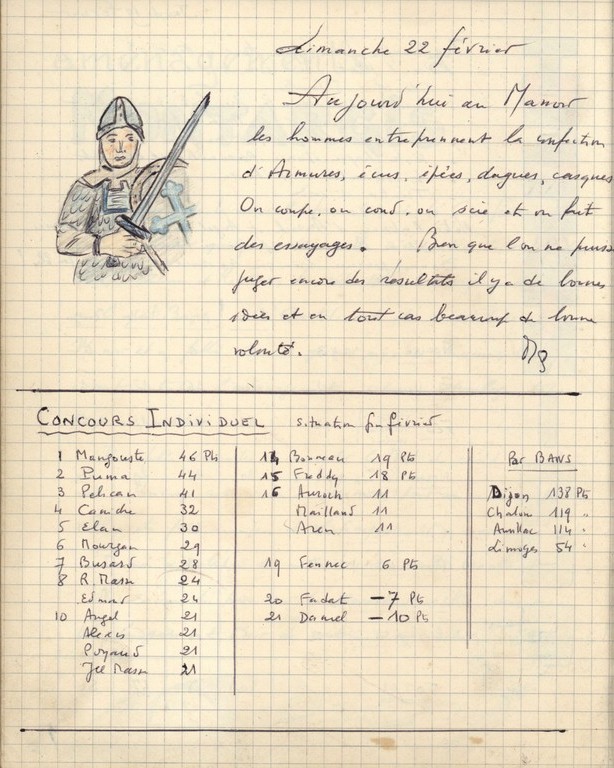 Dimanche 22 février
Aujourd'hui au Manoir
les hommes entreprennent la confection
d'Armures, écus, épées, dagues, casques
On coupe, on coud, on scie et on fait
des essayages. Bien que l'on ne puisse
juger encore des résultats il y a de bonnes
idées et en tout cas beaucoup de bonne
volonté.
CONCOURS INDIVIDUEL situation fin février
1 Mangouste 46 Pts
2 Puma 44
3 Pelican 41
4 Caniche 32
5 Elan 30
6 Mourgan 29
7 Busard 28
8 R. Masn 24
Edmar 24
10 Angel 21
Alexis 21
Poyaud 21
Joel Masn 21
14 Bonneau 19 Pts
15 Freddy 18 Pts
16 Auroch 11
Maillard 11
Aren 11
19 Fennec 6 Pts
20 Fadat -7 Pts
21 Daniel -10 Pts
Par BANS
Dijon 138 Pts
Chalon 119 "
Aurillac 114 "
Limoges 54 "